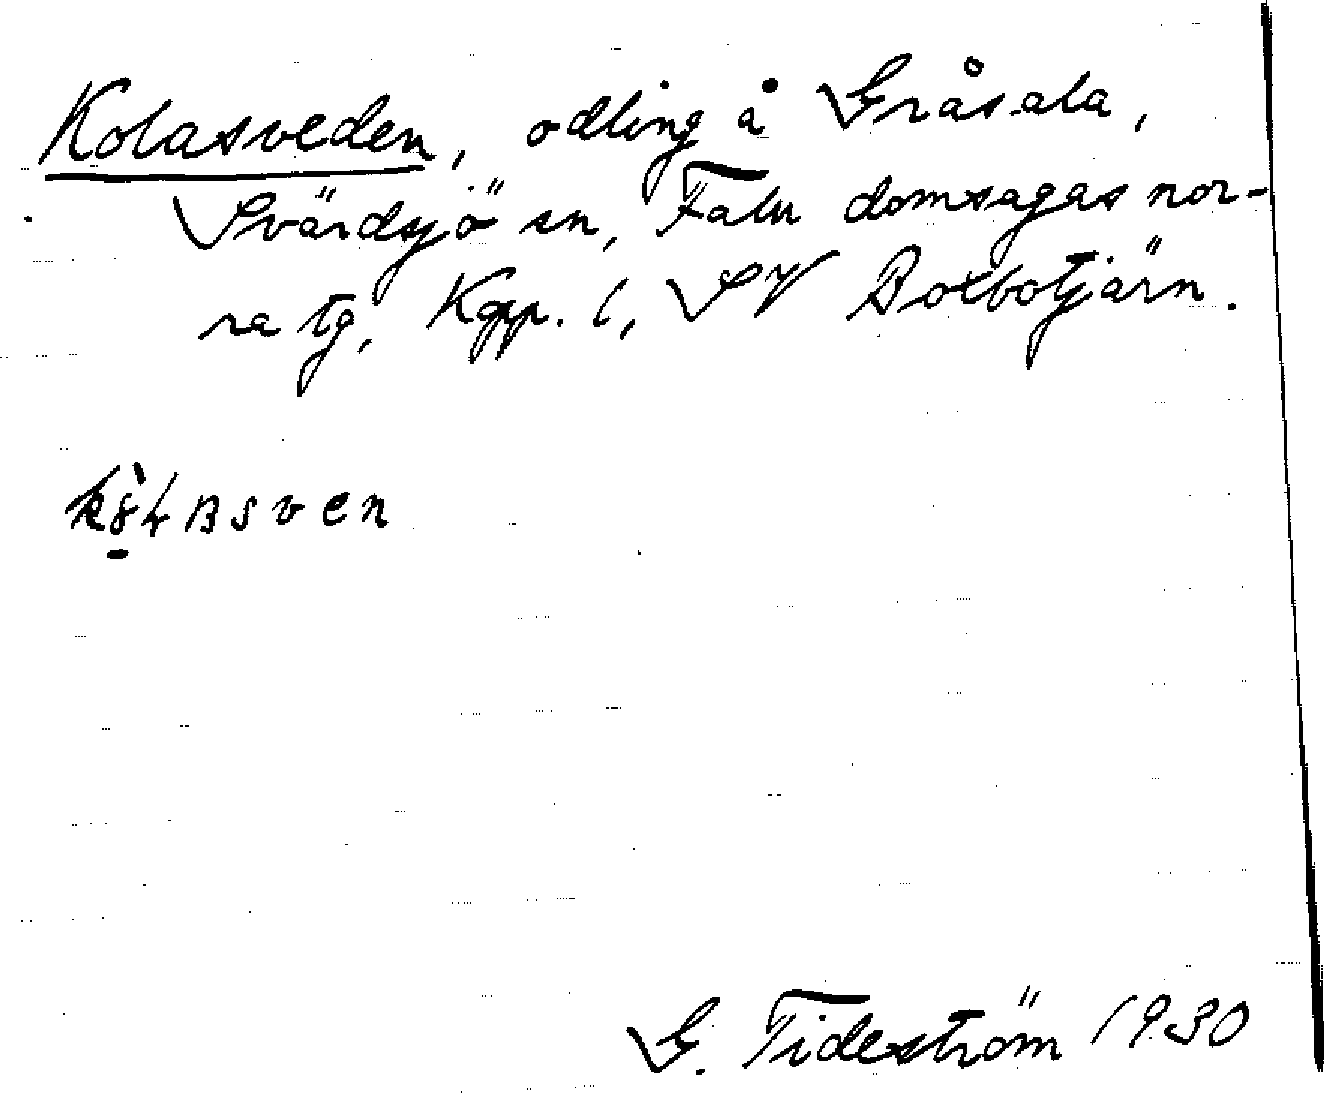 Kolasveden, odling å Gråsala,
Svärdsjö sn, Falu domsagas nor-
ra tg, Kopp. l, SV Boxbotjärn.
G. Tideström 1930